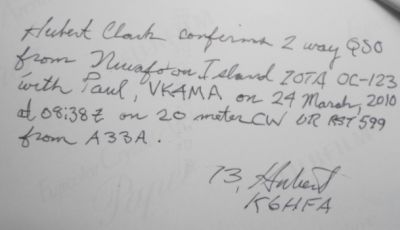 Hubert Clark confirms 2 way QSO
from Niuafo'ou Island IOTA OC-123
with Paul, VK4MA on 24 March, 2010
at 08:38Z on 20 meter CW UR RST 599
from A33A.
73, Hubert
K6HFA